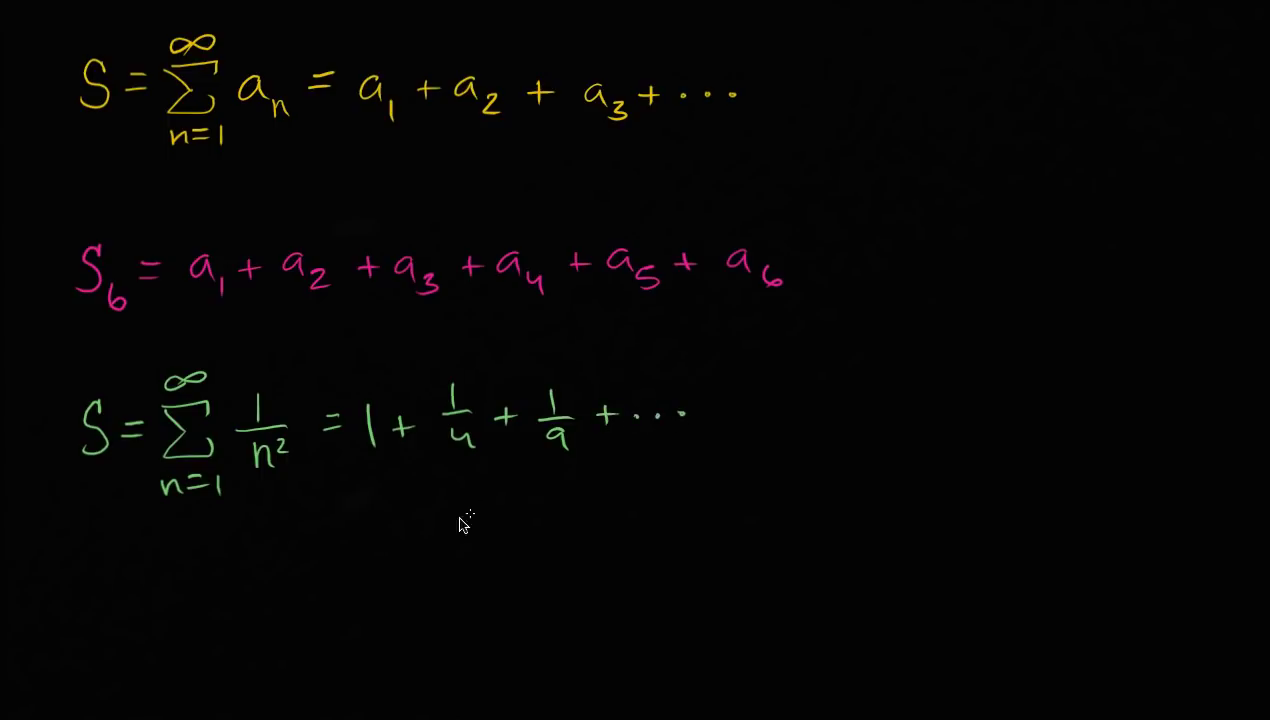 S = ∑_{n=1}^{∞} a_n = a_1 + a_2 + a_3 + ...
S_6 = a_1 + a_2 + a_3 + a_4 + a_5 + a_6
S = ∑_{n=1}^{∞} 1/n² = 1 + 1/4 + 1/9 + ...